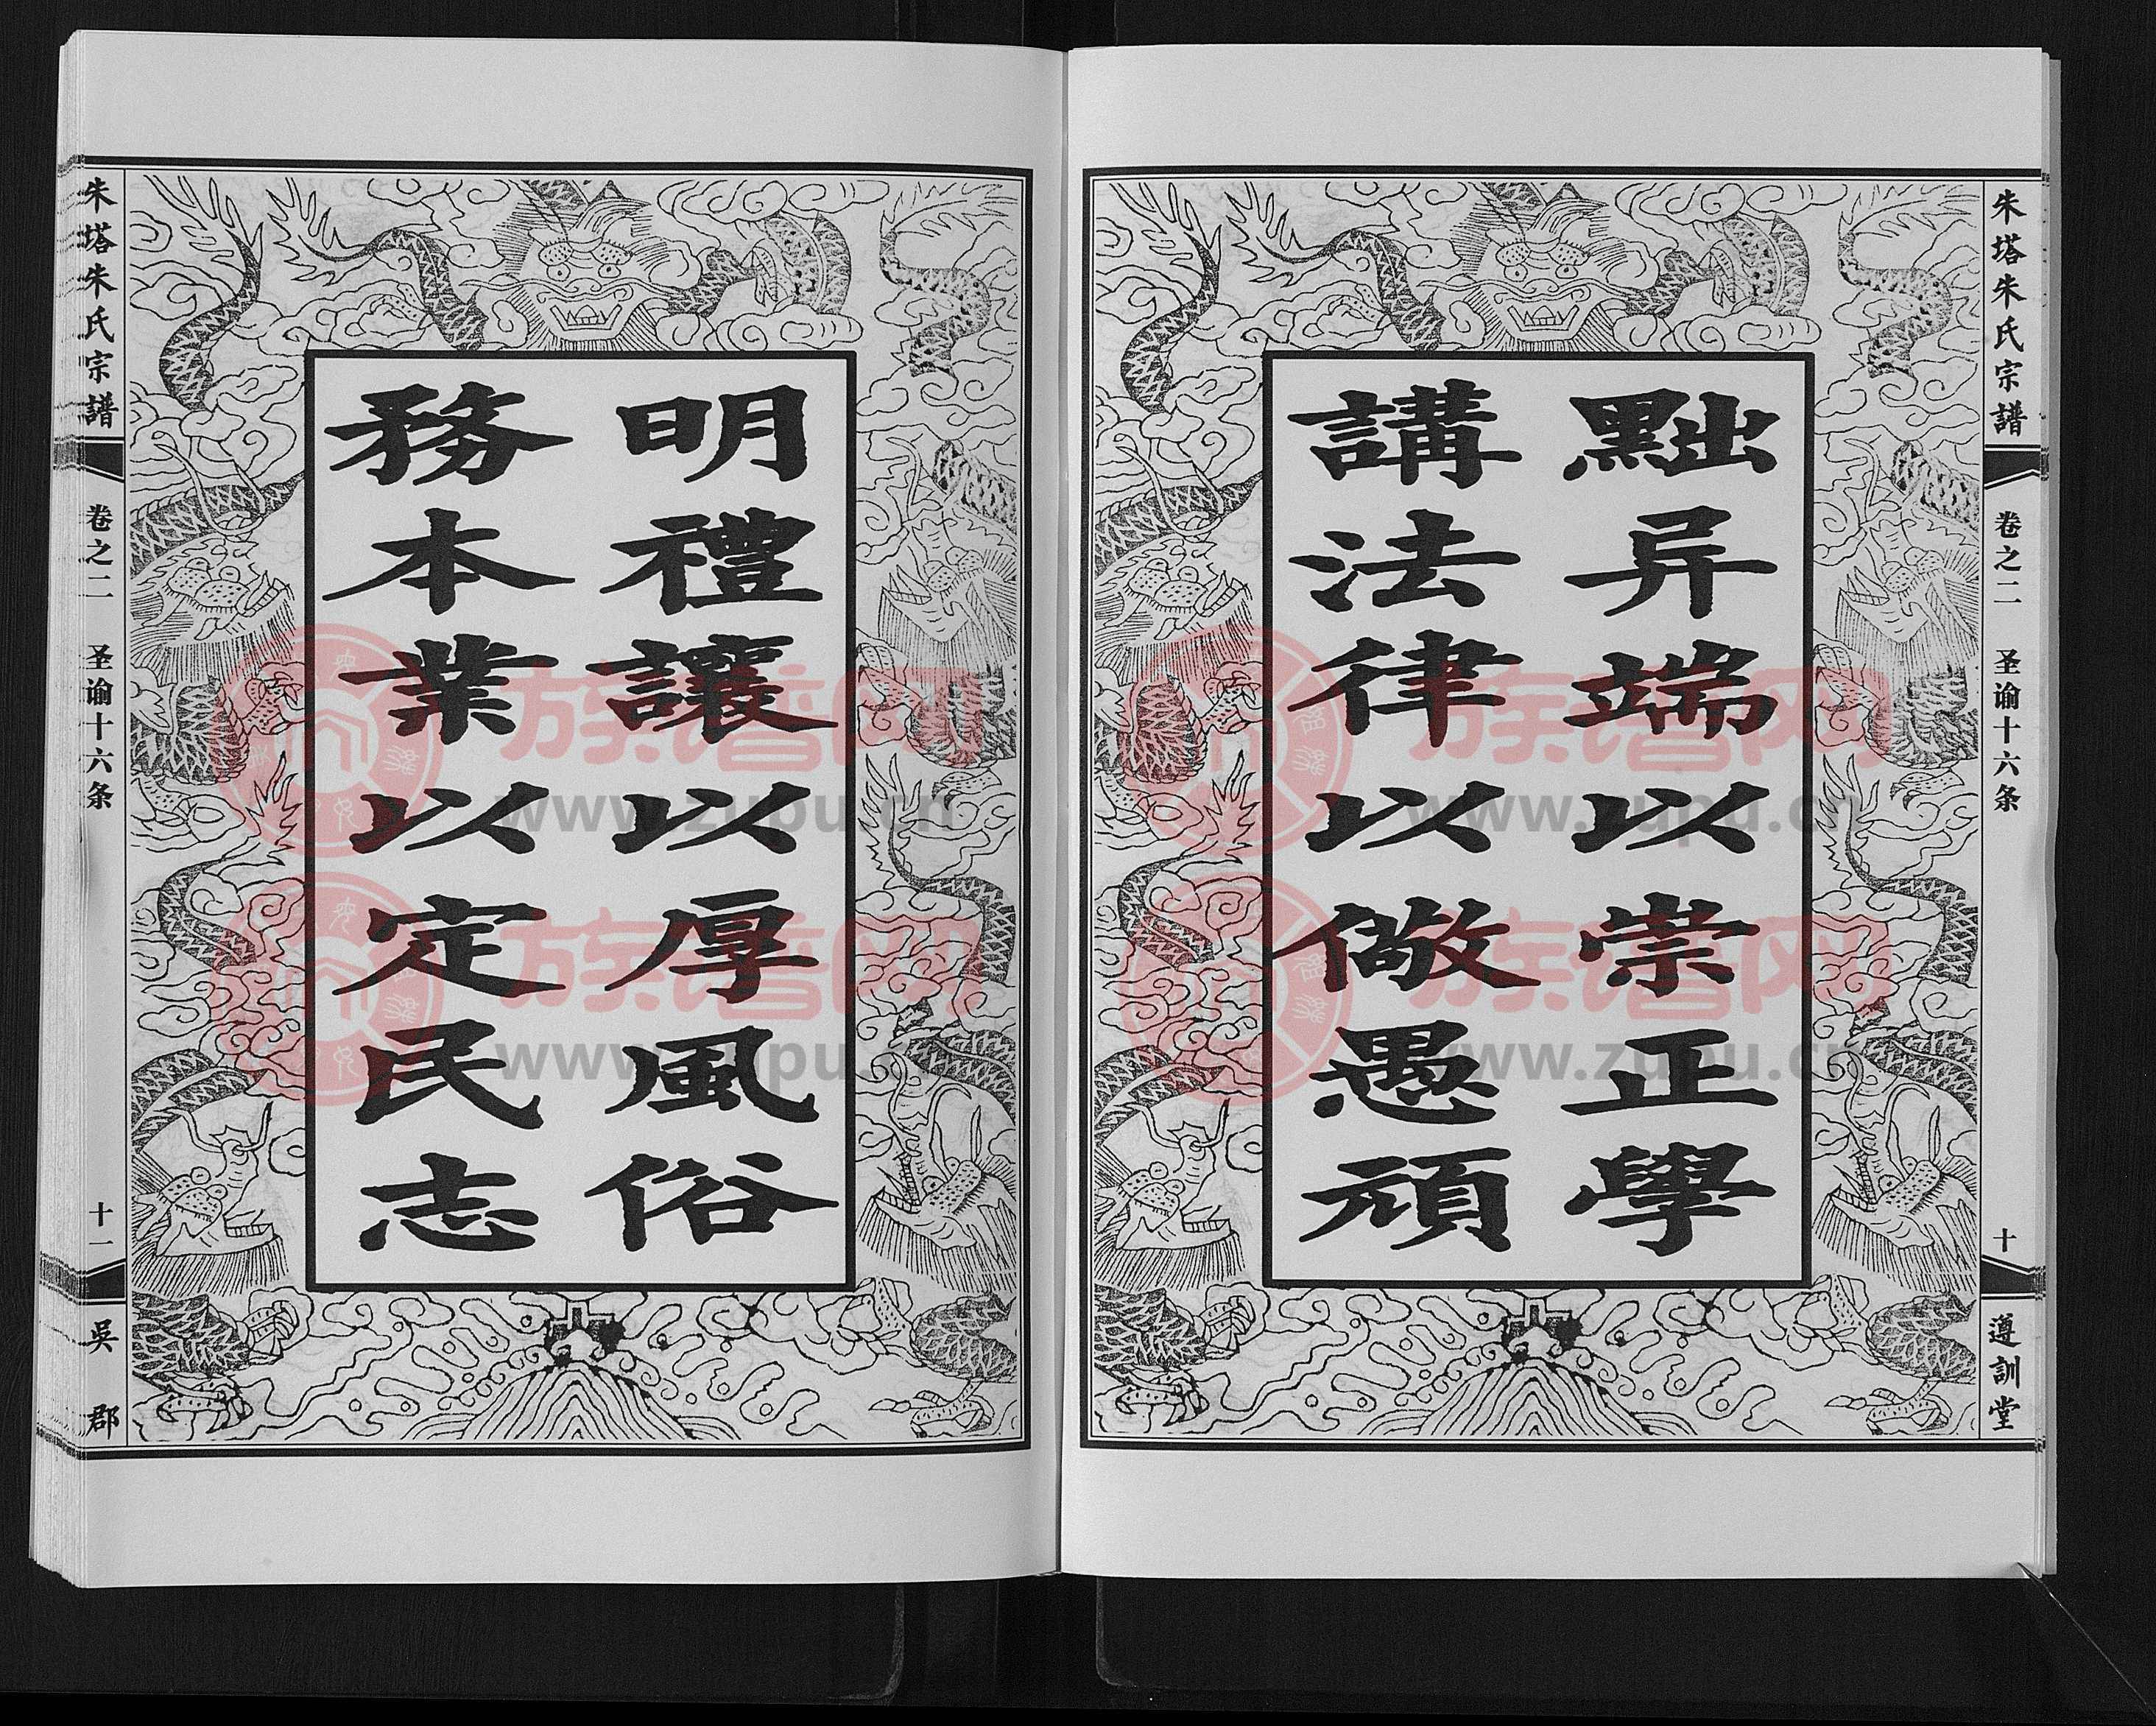 朱塔朱氏宗譜
卷之二　圣谕十六条
十
遵訓堂
黜异端以崇正學
講法律以儆愚頑
明禮讓以厚風俗
務本業以定民志
朱塔朱氏宗譜
卷之二　圣谕十六条
十一
吳郡
族谱网
www.zupu.cn
族谱网
www.zupu.cn
族谱网
www.zupu.cn
族谱网
www.zupu.cn